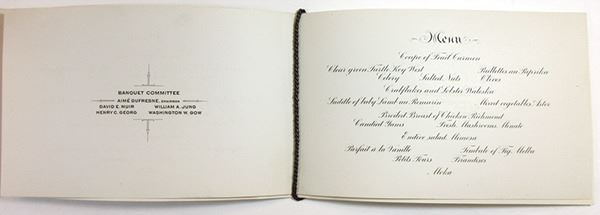 BANQUET COMMITTEE
AIMÉ DUFRESNE, CHAIRMAN
DAVID E. MUIR WILLIAM A. JUNG
HENRY C. GEORG WASHINGTON W. GOW
Menu
Coupe of Fruit Carmen
Clear green Turtle Key West Paillettes au Paprika
Celery Salted Nuts Olives
Crabflakes and Lobster Waleska
Saddle of baby Lamb au Romarin Mixed vegetables Astor
Breaded Breast of Chicken Richmond
Candied Yams Fresh Mushrooms Minute
Endive salad Mimosa
Parfait a la Vanille Timbale of Fig, Melba
Petits Fours Friandises
Moka